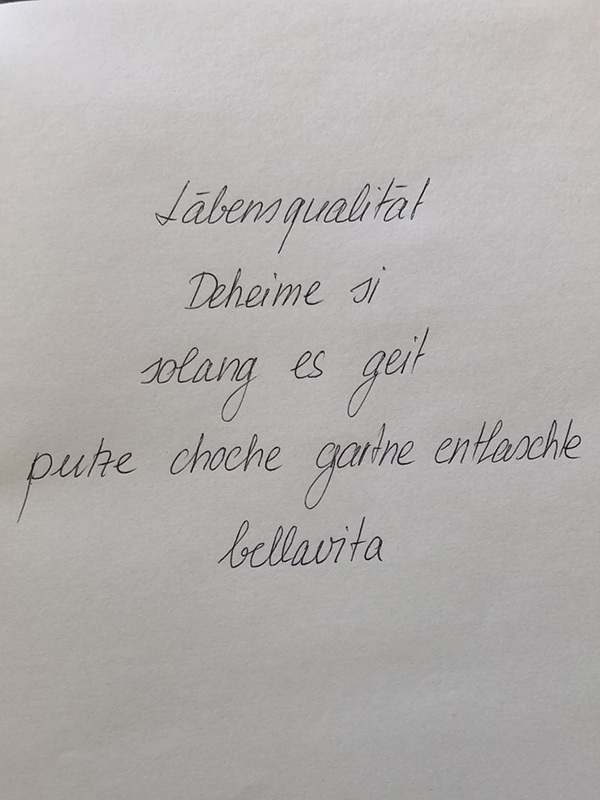 Läbensqualität
Deheime si
solang es geit
putze choche gartne entlaschte
bellavita